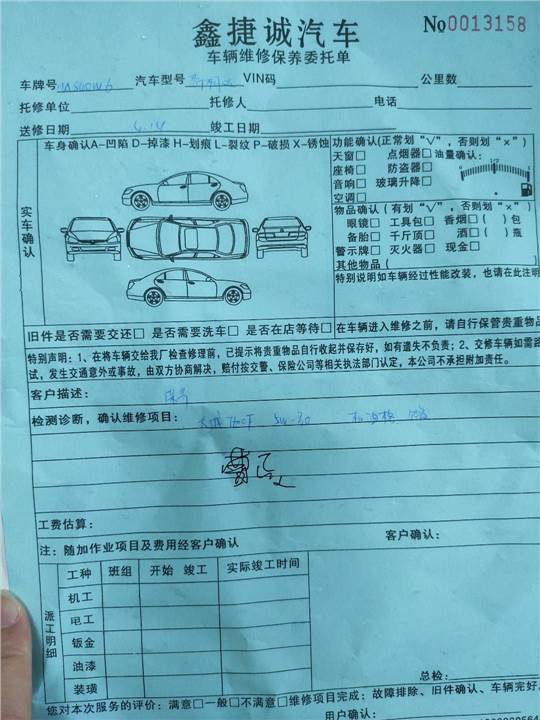 鑫捷诚汽车
No 0013158
车辆维修保养委托单
车牌号 汽车型号 VIN码 公里数
托修单位 托修人 电话
送修日期 竣工日期
车身确认A-凹陷 D-掉漆 H-划痕 L-裂纹 P-破损 X-锈蚀
功能确认(正常划"√",否则划"×")
天窗□ 点烟器□ 油量确认:
座椅□ 防盗器□
音响□ 玻璃升降□
空调□
1/2
实车确认
物品确认(有划"√",否则划"×")
眼镜□ 工具包□ 香烟□( )包
备胎□ 千斤顶□ 酒□( )瓶
警示牌□ 灭火器□ 现金□
其他物品(
特别说明如车辆经过性能改装,也请在此注明
旧件是否需要交还□ 是否需要洗车□ 是否在店等待□
在车辆进入维修之前,请自行保管贵重物品
特别声明:1、在将车辆交给我厂检查修理前,已提示将贵重物品自行收起并保存好,如有遗失不负责;2、交修车辆如需路
试,发生交通意外或事故,由双方协商解决,赔付按交警、保险公司等相关执法部门认定,本公司不承担附加责任。
客户描述: 保养
检测诊断,确认维修项目: 5W-30
工费估算:
客户确认:
注:随加作业项目及费用经客户确认
派工明细
工种 班组 开始 竣工 实际竣工时间
机工
电工
钣金
油漆
装璜
总检:
您对本次服务的评价:满意□一般□不满意□维修项目完成;故障排除、旧件确认、车辆完好。
用户确认: